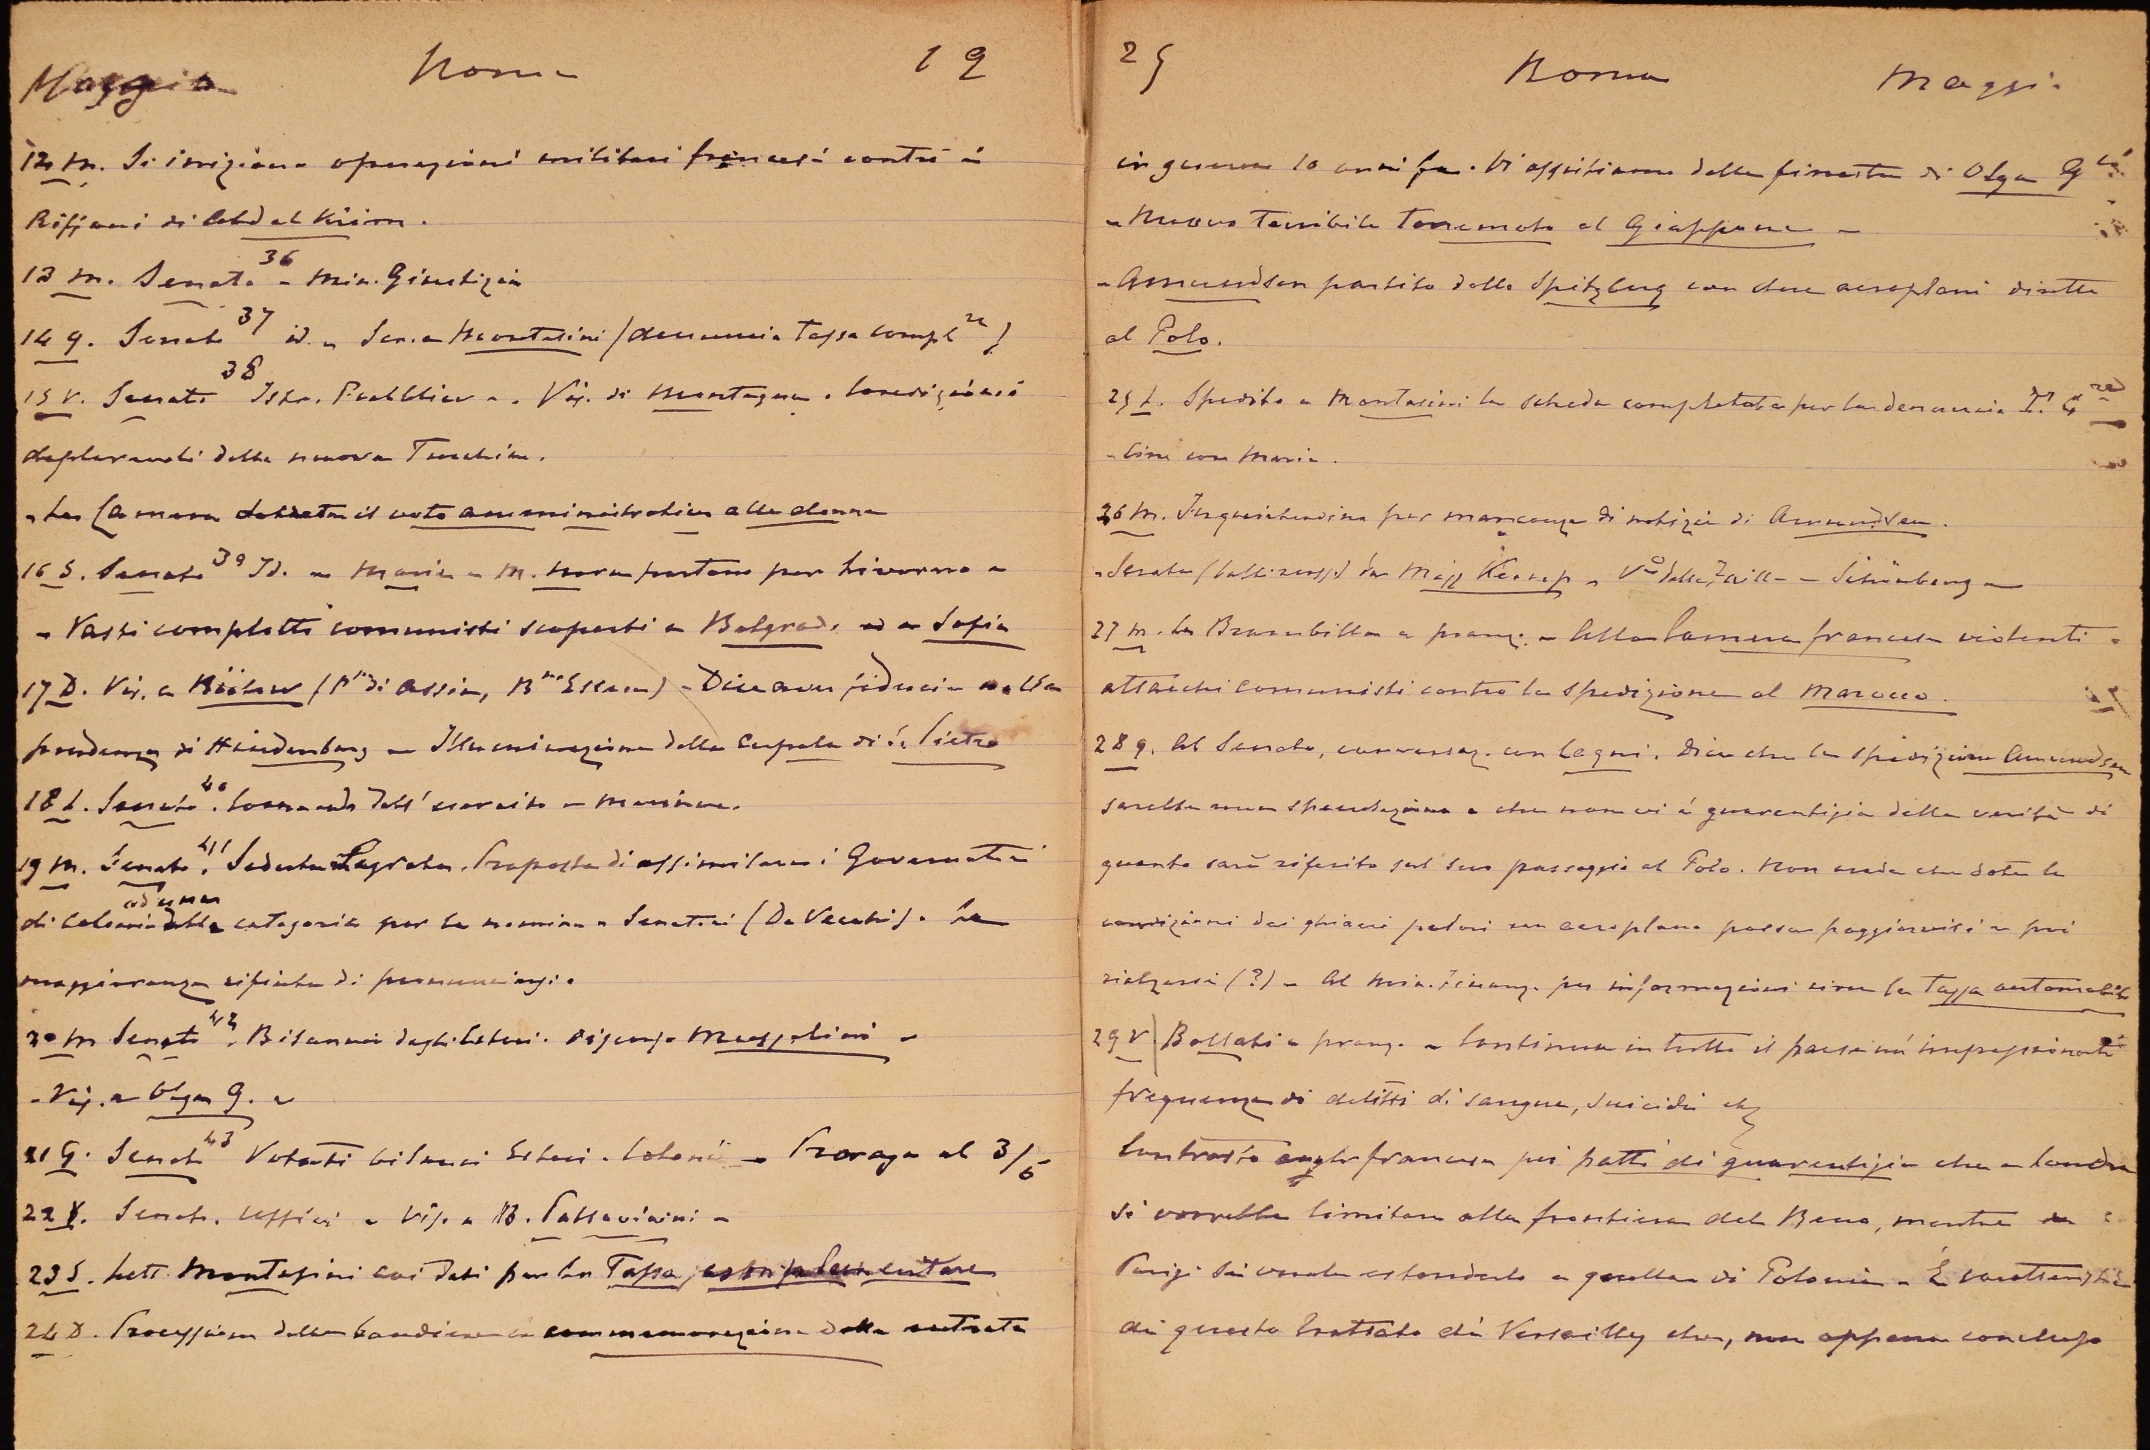 Maggio Roma 19
12 M. Si iniziano operazioni militari francesi contro i
Riffani di Abd el Krim.
13 M. Senato 36 - Min. Giustizia
14 G. Senato 37 id. - Montasini (denuncia Tassa Compl re)
15 V. Senato 38 Istr. Pubblica - Vis. di Montagna. Condizioni
deplorevoli della nuova Turchia.
- La Camera il voto amministrativo alle donne
16 S. Senato 39 Id. - Maria e M. Nora partono per Livorno -
- Vasti complotti comunisti scoperti a Belgrado ed a Sofia
17 D. Vis. a Bülow (P di Assia, B ) - Dice aver fiducia nella
prudenza di Hindenburg - Illuminazione della Cupola di S. Pietro
18 L. Senato 40. Comando dell' esercito - Marina.
19 M. Senato 41. Seduta Segreta. Proposta di assimilare i Governatori
di Colonia ad una categoria per la nomina a Senatori (De Vecchi). La
maggioranza rifiuta di pronunciarsi.
20 M Senato 42. Bilancio degli Esteri. Discorso Mussolini -
- Vis. a Olga G. -
21 G. Senato 43 Votati bilanci Esteri. Colonie - Proroga al 3/6
22 V. Senato. Uffici - Vis. a B. Pallavicini -
23 S. Lett. Montasini coi dati per la Tassa complementare
24 D. Processione delle bandiere in commemorazione della entrata
25 Roma Maggio
in guerra 10 anni fa. Vi assistiamo dalla finestra di Olga G
- Nuovo terribile terremoto al Giappone -
- Amundsen partito dallo Spitzberg con due aeroplani diretto
al Polo.
25 L. Spedito a Montasini la scheda completata per la denuncia
- Cine con Maria.
26 M. Inquietudine per mancanza di notizie di Amundsen.
- Serata da Miss - -
27 M. La Brambilla a pranz. - Alla Camera francese violenti
attacchi comunisti contro la spedizione al Marocco.
28 G. Al Senato, conversaz. con Cagni. Dice che la spedizione Amundsen
sarebbe una speculazione e che non vi è guarentigia della verità di
quanto sarà riferito sul suo passaggio al Polo. Non crede che date le
condizioni dei ghiacci polari un aeroplano possa poggiarvisi e poi
rialzarsi (?) - Al Min. Finanz. per informazioni circa la Tassa automobili
29 V Bollati a pranz. - Continua in tutto il paese un' impressionante
frequenza di delitti di sangue, suicidi etc
Contrasto anglo francese pei patti di guarentigia che a Londra
si vorrebbe limitare alla frontiera del Reno, mentre a
Parigi si vuole estenderlo a quella di Polonia - È caratteristico
di questo trattato di Versailles che, non appena concluso